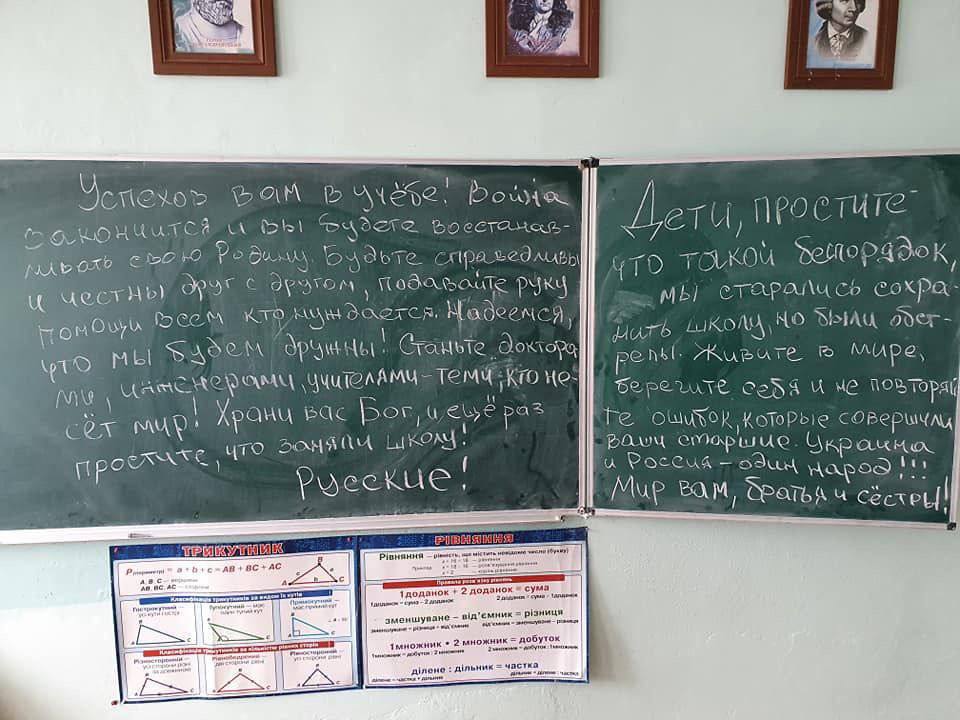 Успехов вам в учёбе! Война
закончится и вы будете восстанав-
ливать свою Родину. Будьте справедливы
и честны друг с другом, подавайте руку
помощи всем кто нуждается. Надеемся,
что мы будем дружны! Станьте доктора-
ми, инженерами, учителями - теми, кто не-
сёт мир! Храни вас Бог, и ещё раз
простите, что заняли школу!
Русские!
Дети, простите
что такой беспорядок,
мы старались сохра-
нить школу, но были обст-
релы. Живите в мире,
берегите себя и не повторяй
те ошибок, которые совершили
ваши старшие. Украина
и Россия - один народ!!!
Мир вам, братья и сёстры!
ТРИКУТНИК
P (периметр) = a + b + c = AB + BC + AC
A, B, C — вершини
AB, BC, AC — сторони
Класифікація трикутників за видом їх кутів
Гострокутний —
усі кути гострі
Тупокутний — має
один тупий кут
Прямокутний —
має прямий кут
Класифікація трикутників за кількістю рівних сторін
Різносторонній —
усі сторони різні
за довжиною
Рівнобедрений —
дві сторони рівні
Рівносторонній —
усі сторони рівні
РІВНЯННЯ
Рівняння — рівність, що містить невідоме число (букву)
Правила розв'язку рівнянь
1доданок + 2 доданок = сума
1доданок = сума - 2 доданок
2 доданок = сума - 1доданок
зменшуване – від'ємник = різниця
зменшуване = різниця + від'ємник
від'ємник = зменшуване – різниця
1множник • 2 множник = добуток
1множник = добуток : 2 множник
2 множник = добуток : 1множник
ділене : дільник = частка
ділене = частка • дільник
дільник = ділене : частка